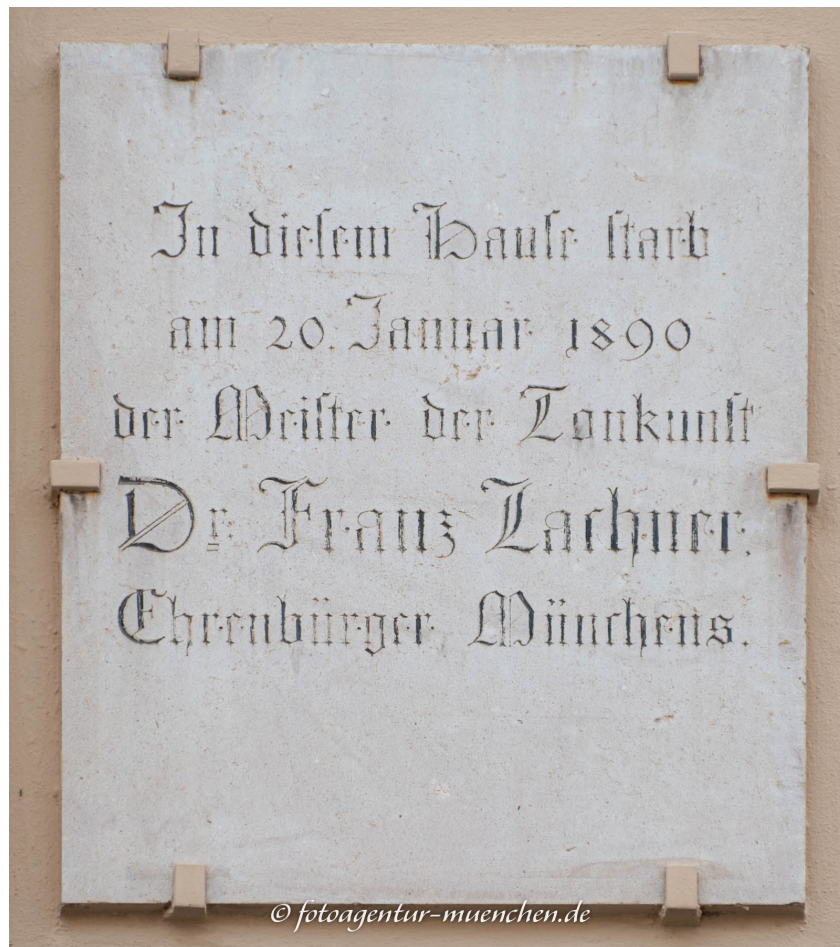 In dieſem Hauſe ſtarb
am 20. Januar 1890
der Meiſter der Tonkunſt
Dr. Franz Lachner.
Ehrenbürger Münchens.
© fotoagentur-muenchen.de